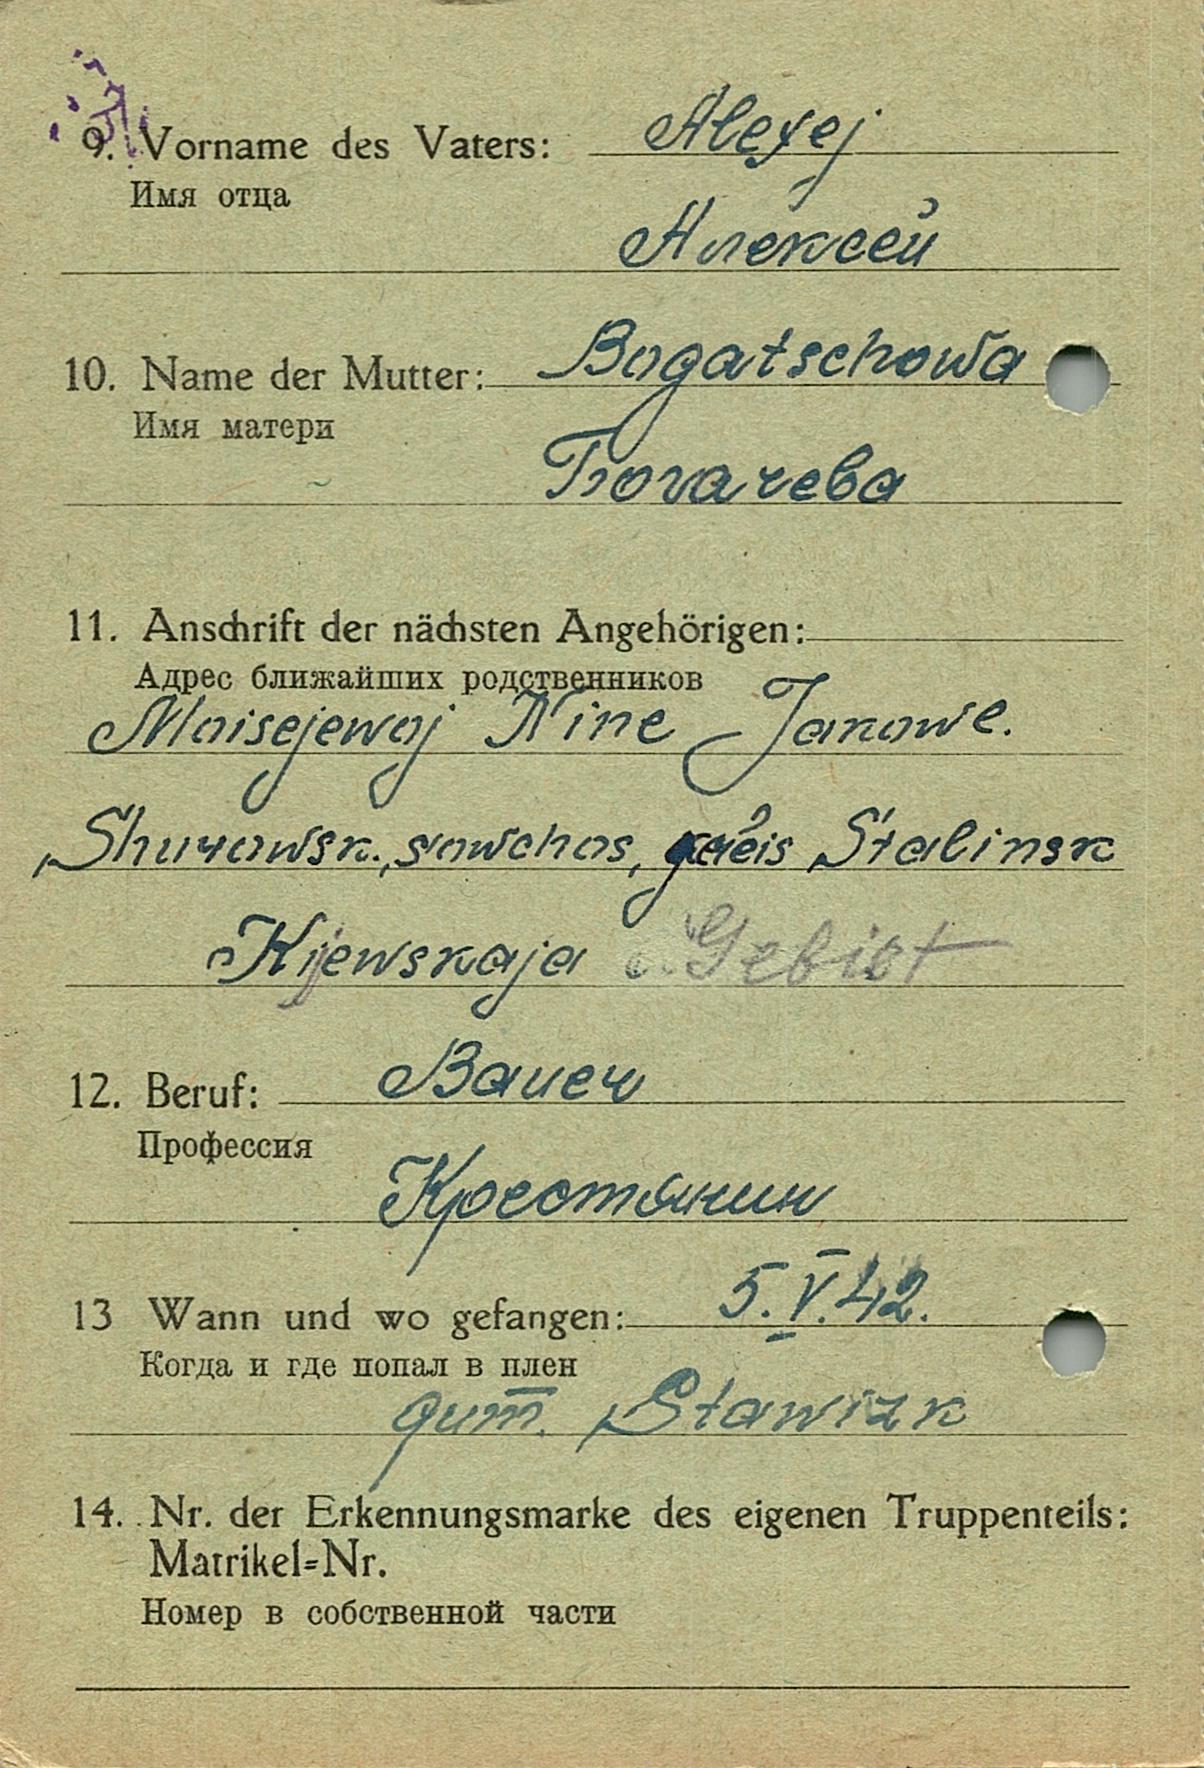 9. Vorname des Vaters: Alexej
Имя отца
Алексей
10. Name der Mutter: Bogatschowa
Имя матери
Богачева
11. Anschrift der nächsten Angehörigen:
Адрес ближайших родственников
Moisejewoj Nine Jakowe.
sowchos, Stalinsk
Kijewskaja Gebiet
12. Beruf: Bauer
Профессия
Крестянин
13 Wann und wo gefangen: 5.V.42.
Когда и где попал в плен
14. Nr. der Erkennungsmarke des eigenen Truppenteils:
Matrikel=Nr.
Номер в собственной части